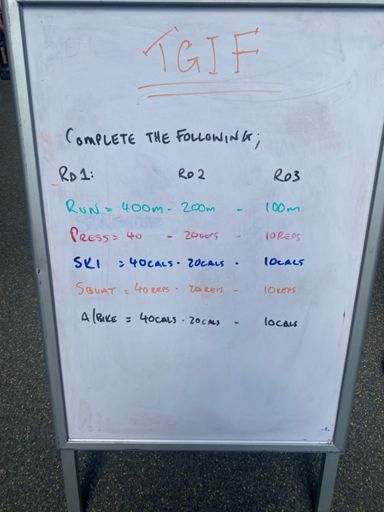 TGIF
COMPLETE THE FOLLOWING;
RD1: RD2 RD3
RUN = 400M - 200M - 100M
PRESS = 40 - 20REPS - 10REPS
SKI = 40CALS - 20CALS - 10CALS
SQUAT = 40REPS - 20REPS - 10REPS
A/BIKE = 40CALS - 20CALS - 10CALS